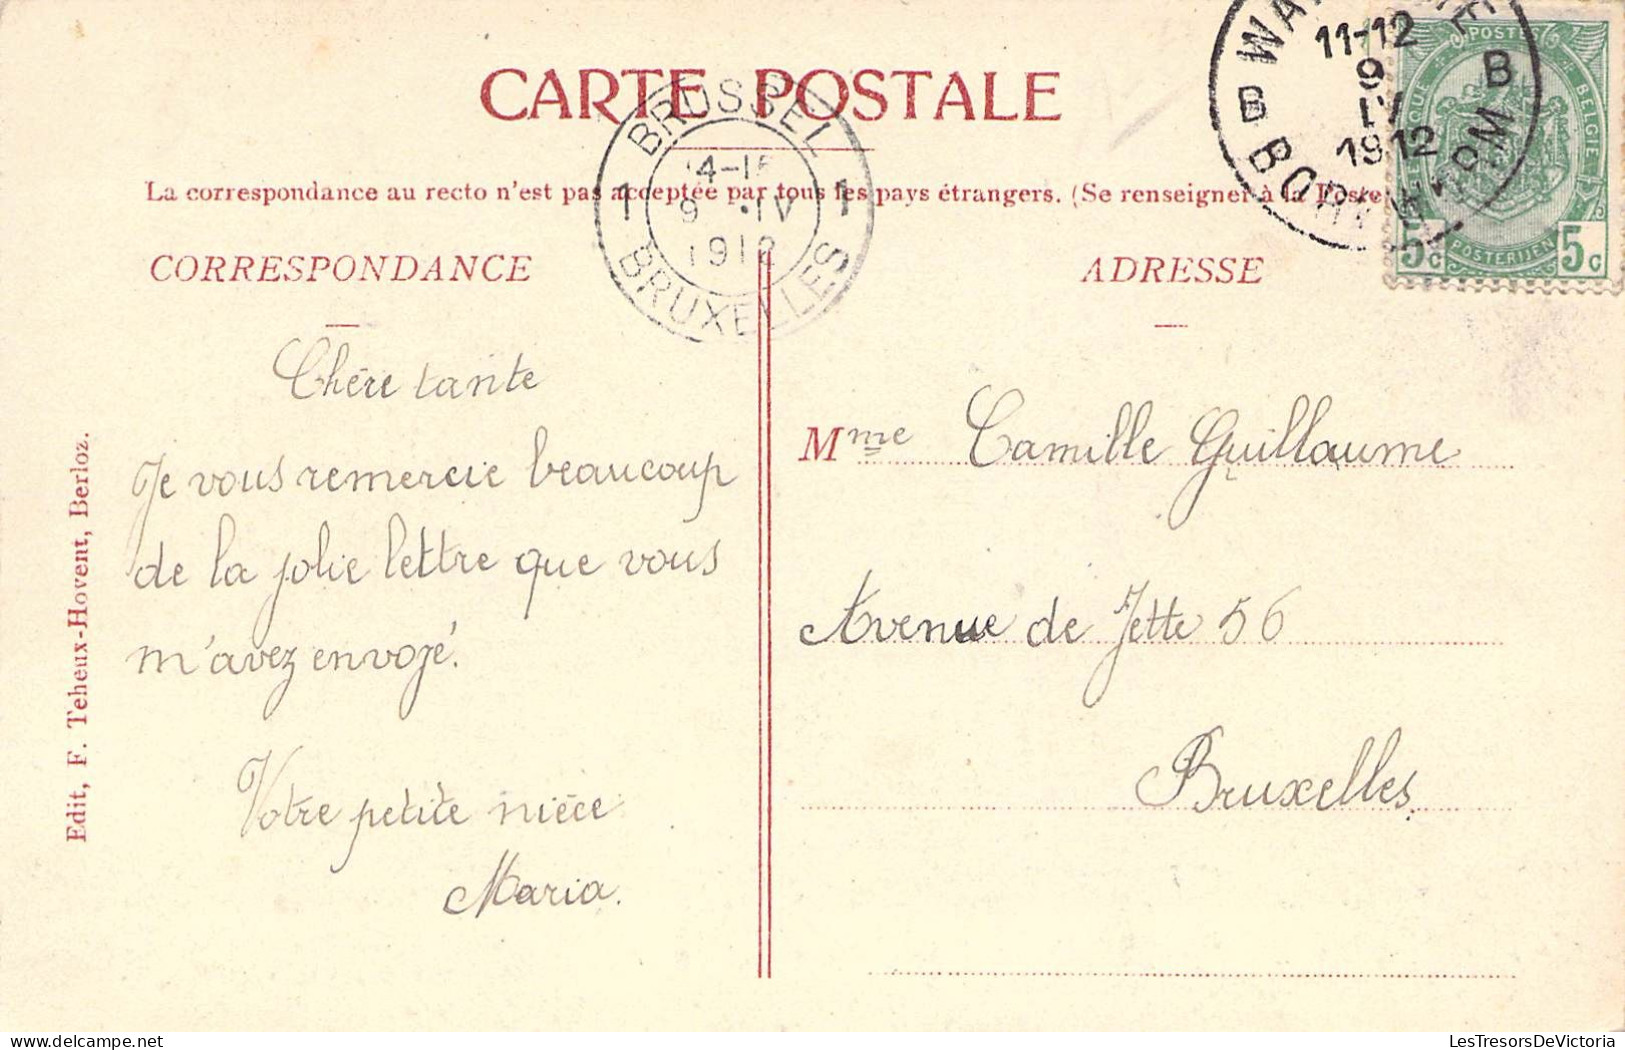 CARTE POSTALE
La correspondance au recto n'est pas acceptée par tous les pays étrangers. (Se renseigner à la Poste
CORRESPONDANCE
ADRESSE
BRUSSEL
1 1
9 IV
1912
BRUXELLES
11-12
9
IV
1912
B B
POSTES
BELGIE
POSTERIJEN
5c 5c
Chère tante
Je vous remercie beaucoup
de la jolie lettre que vous
m'avez envoyé.
Votre petite nièce
Maria.
Mme Camille Guillaume
Avenue de Jette 56
Bruxelles.
Edit, F. Teheux-Hovent, Berloz.
LesTresorsDeVictoria